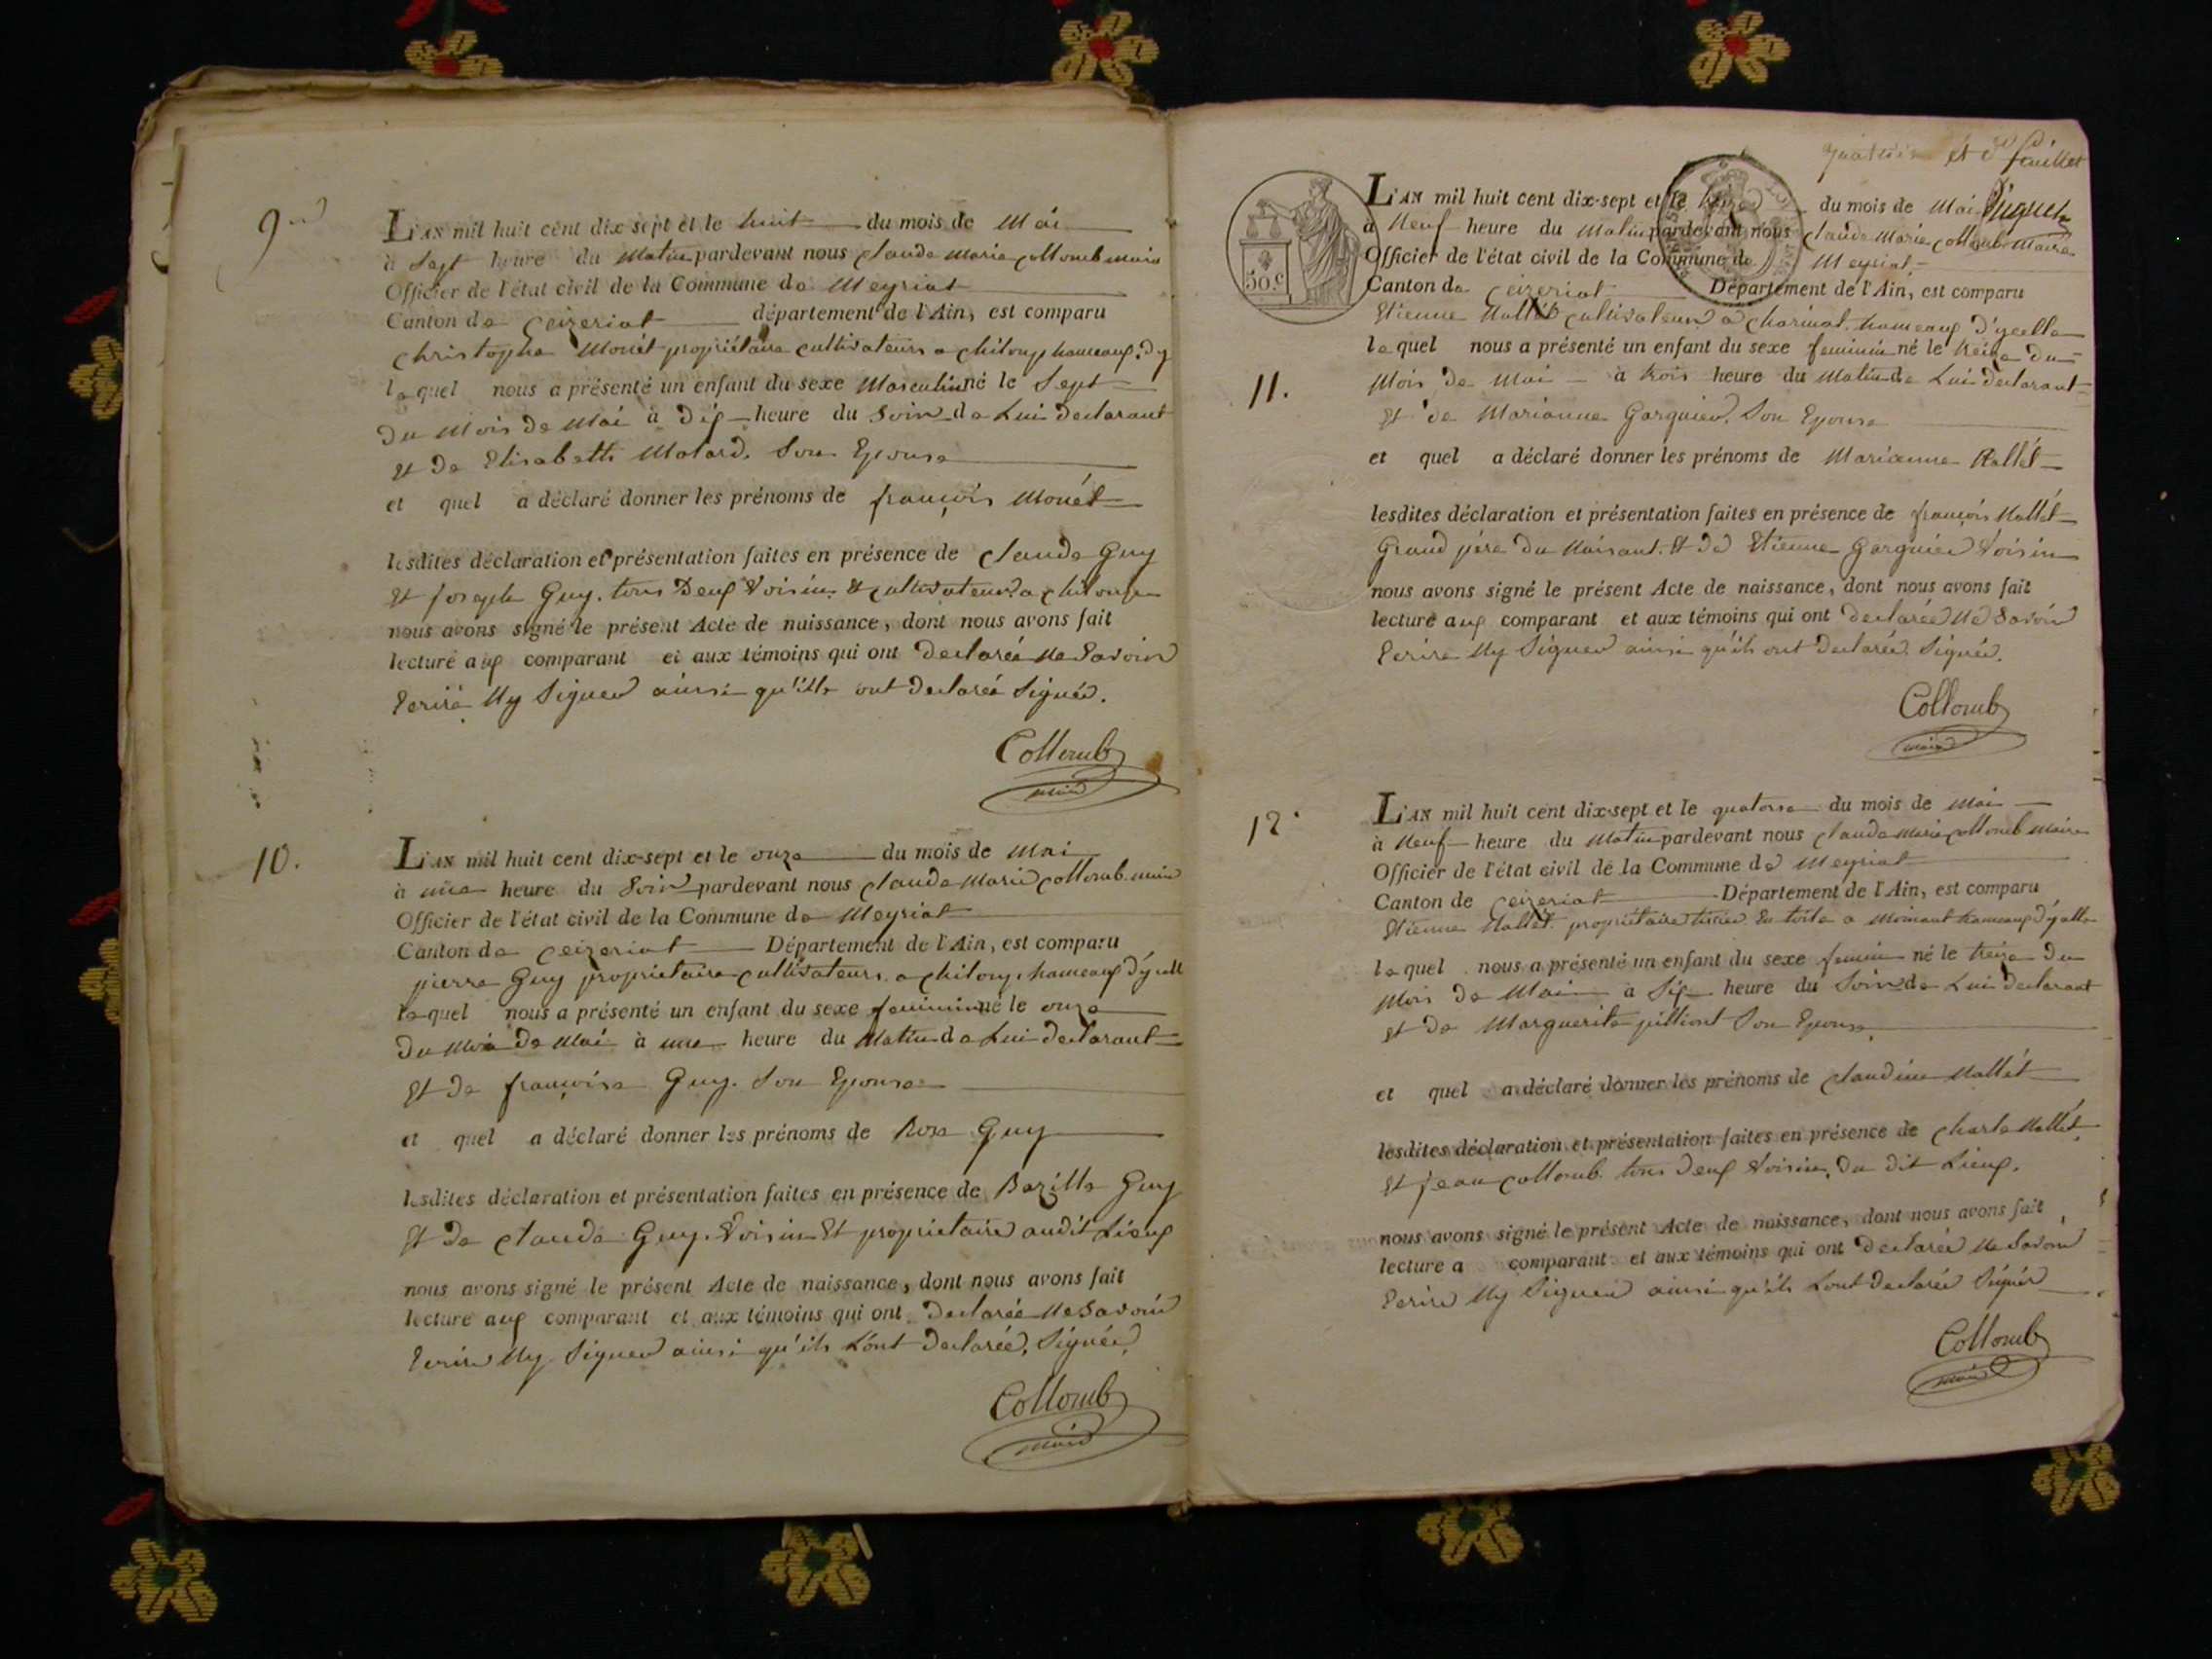 9
L'AN mil huit cent dix-sept et le huit du mois de Mai
à Sept heure du Matin pardevant nous Claude Marie Collomb maire
Officier de l'état civil de la Commune de Meyriat
Canton de Ceizeriat département de l'Ain, est comparu
Christophe Monét propriétaire cultivateur a Chiloup hameaux
lequel nous a présenté un enfant du sexe Masculin né le Sept
du Mois de Mai à Dix heure du Soir de Lui Declarant
Et de Elisabeth Molard. Son Epouse
et quel a déclaré donner les prénoms de françois Monét
lesdites déclaration et présentation faites en présence de Claude Guy
Et joseph Guy. tous Deux Voisins & cultivateurs a chiloup
nous avons signé le présent Acte de naissance, dont nous avons fait
lecture aux comparant et aux témoins qui ont Declarée Ne Savoir
Ecrire Ny Signer ainsi qu'ils ont Declarée Signée.
Collomb
maire
10.
L'AN mil huit cent dix-sept et le onze du mois de Mai
à une heure du Soir pardevant nous Claude Marie Collomb maire
Officier de l'état civil de la Commune de Meyriat
Canton de Ceizeriat Département de l'Ain, est comparu
pierre Guy propriétaire cultivateurs a Chiloup hameaux d'ycelle
lequel nous a présenté un enfant du sexe feminin né le onze
du Mois de Mai à une heure du Matin de Lui declarant
Et de françoise Guy. Son Epouse
et quel a déclaré donner les prénoms de Rose Guy
lesdites déclaration et présentation faites en présence de Bazille Guy
Et de Claude Guy. Voisin Et propriétaire audit Lieux
nous avons signé le présent Acte de naissance, dont nous avons fait
lecture aux comparant et aux témoins qui ont Declarée Ne Savoir
Ecrire Ny Signer ainsi qu'ils L'ont Declarée, Signée,
Collomb
maire
et feuillet
50.c
L'AN mil huit cent dix-sept et le du mois de Mai
à Neuf heure du Matin pardevant nous Claude Marie Collomb Maire
Officier de l'état civil de la Commune de Meyriat
Canton de Ceizeriat Département de l'Ain, est comparu
Etienne Hallét cultivateur a Charinat hameaux D'ycelle
lequel nous a présenté un enfant du sexe feminin né le treize du
11.
Mois de Mai à trois heure du Matin de Lui declarant
Et de Marianne Garguier. Son Epouse
et quel a déclaré donner les prénoms de Marianne Hallét
lesdites déclaration et présentation faites en présence de françois Hallét
Grand père du Naisant. Et de Etienne Garguier Voisin
nous avons signé le présent Acte de naissance, dont nous avons fait
lecture aux comparant et aux témoins qui ont declarée Ne Savoir
Ecrire Ny Signer ainsi qu'ils ont Declarée. Signée.
Collomb
maire
12.
L'AN mil huit cent dix-sept et le quatorse du mois de Mai
à Neuf heure du Matin pardevant nous Claude Marie Collomb Maire
Officier de l'état civil de la Commune de Meyriat
Canton de Ceizeriat Département de l'Ain, est comparu
Etienne Hallét. propriétaire En toile a hameaux d'ycelle
lequel nous a présenté un enfant du sexe feminin né le treize du
Mois de Mai à Six heure du Soir de Lui declarant
et de Marguerite Son Epouse
et quel a déclaré donner les prénoms de Claudine Hallét
lesdites déclaration et présentation faites en présence de Charle Hallét
Et jean Collomb. tous Deux Voisins, du dit Lieux.
nous avons signé le présent Acte de naissance, dont nous avons fait
lecture a comparant et aux témoins qui ont declarée Ne Savoir
Ecrire Ny Signer ainsi qu'ils L'ont Declarée Signée
Collomb
maire